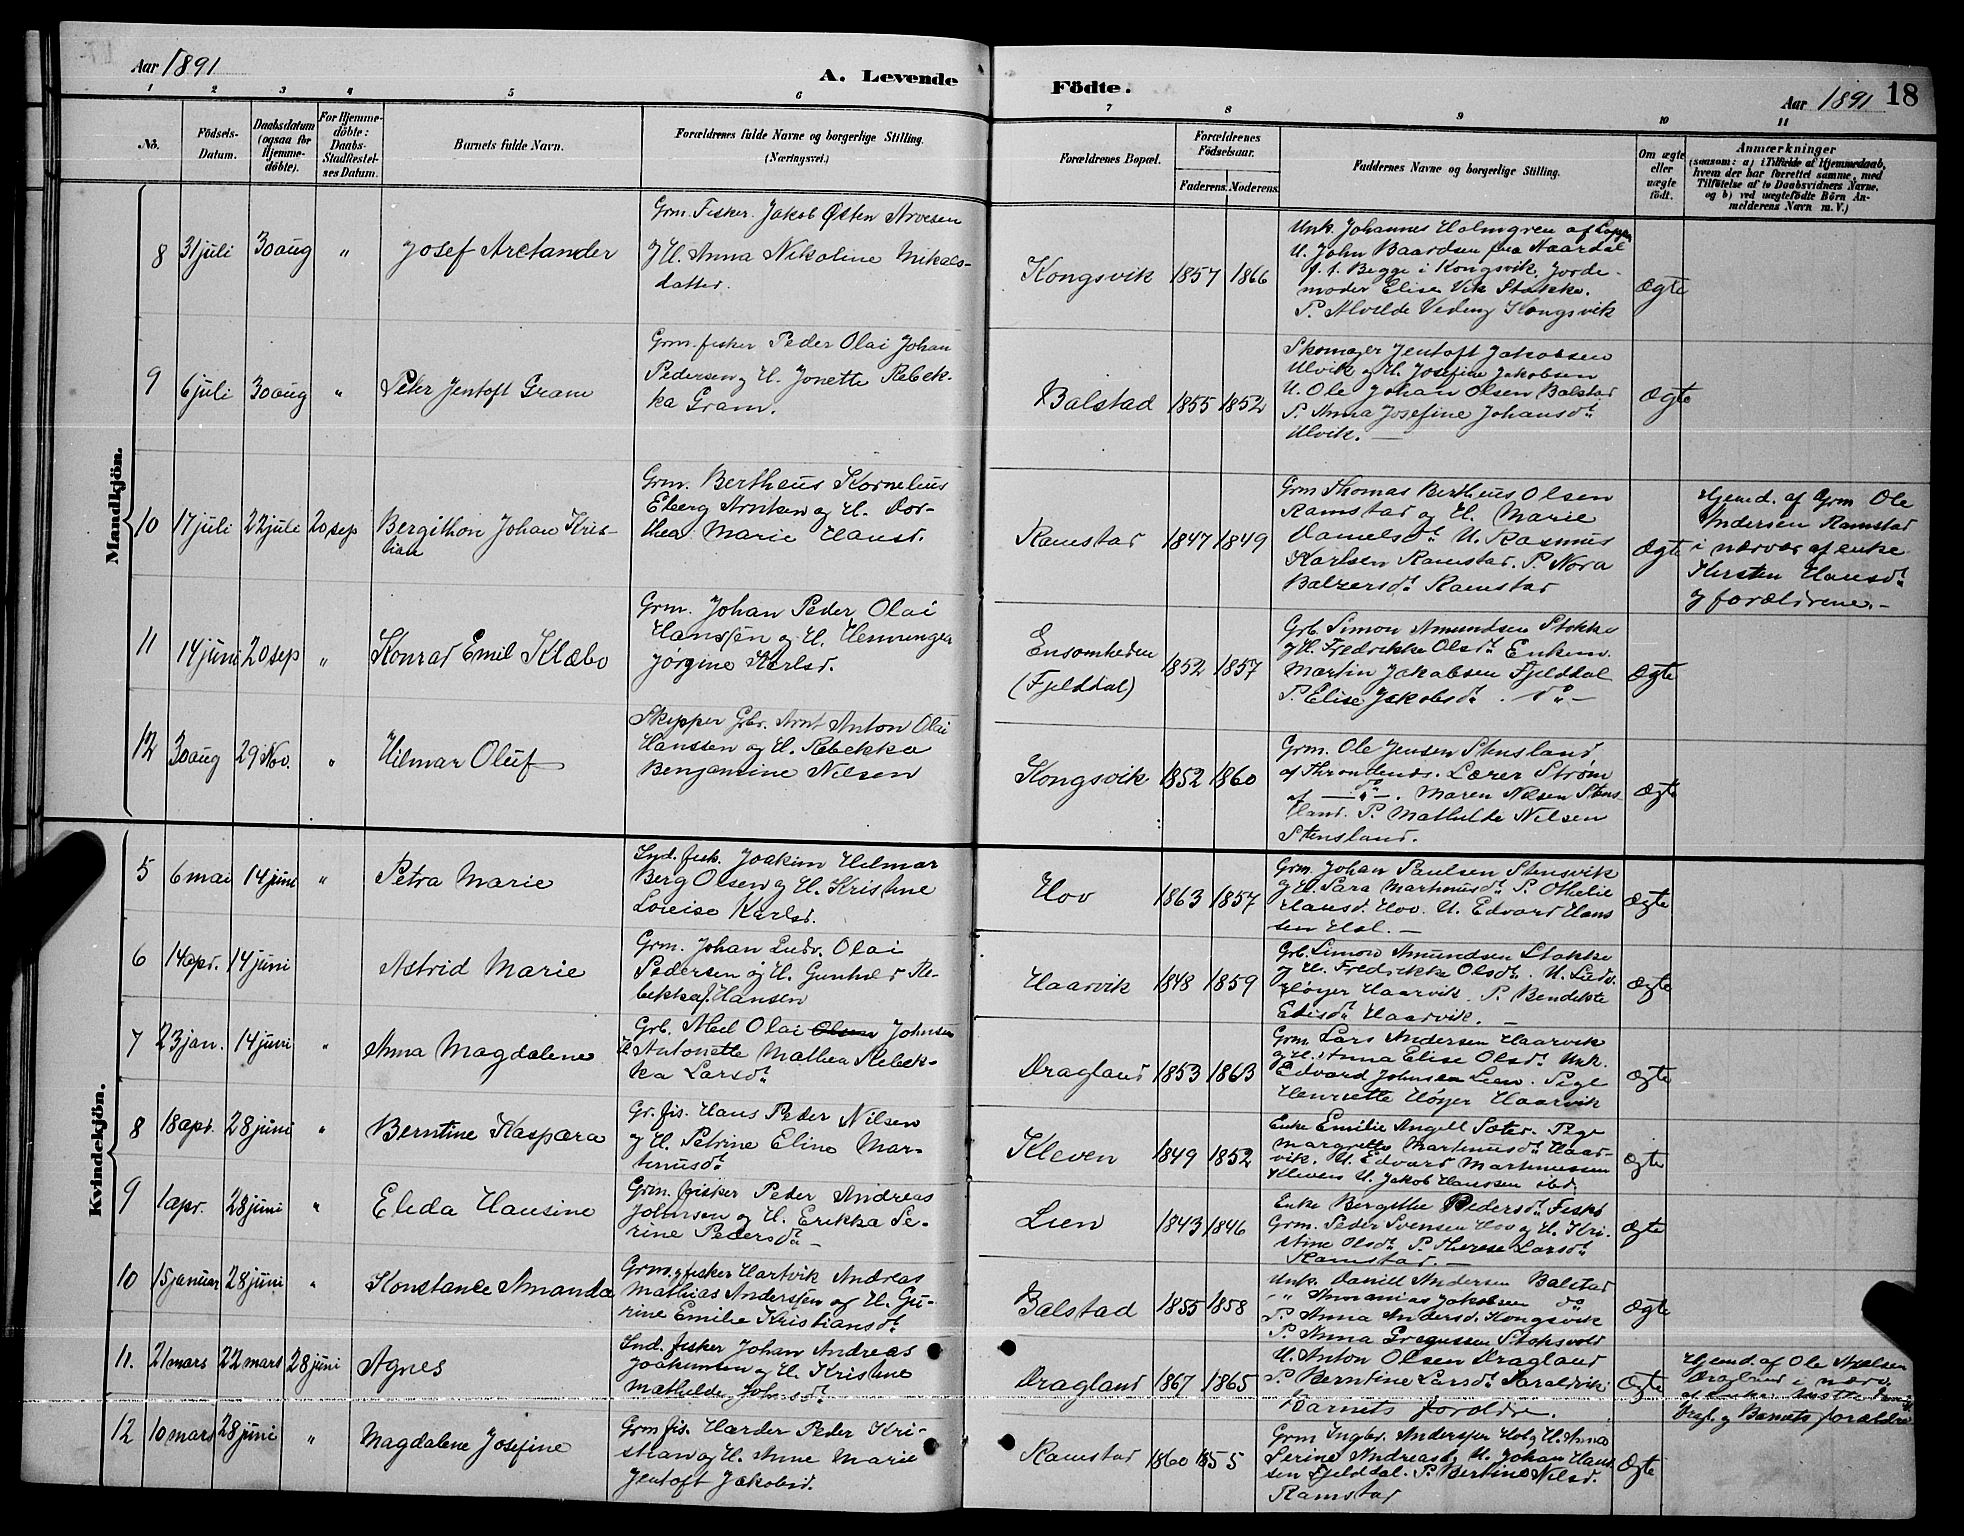 Aar 1891
A. Levende
Födte.
Aar 1891
18
1 2 3 4 5 6 7 8 9 10 11
No.
Födsels-
Datum.
Daabsdatum
(ogsaa for
Hjemme-
döbte).
For Hjemme-
döbte:
Daabs-
Stadfæstel-
ses Datum.
Barnets fulde Navn.
Forældrenes fulde Navne og borgerlige Stilling.
(Næringsvei.)
Forældrenes Bopæl.
Forældrenes
Födselsaar.
Faderens. Moderens.
Faddernes Navne og borgerlige Stilling.
Om ægte
eller
uægte
födt.
Anmærkninger
(saasom: a) i Tilfælde af Hjemmedaab,
hvem der har forrettet samme, med
Tilföielse af to Daabsvidners Navne.
og b) ved uægtefödte Börn An-
melderens Navn m. V.)
Mandkjön.
8 31 juli 30 aug " Josef Arctander
Grm. Fisker. Jakob Østen Arvesen
og H. Anna Nikoline Mikals-
datter.
Kongsvik 1857 1866
Unk. Johannes Holmgren af Loppen
U. John Baardsen fra Naardal
Begge i Kongsvik. Jorde-
moder Elise Vik Stokke.
P. Alvilde Vedeng Kongsvik
Ægte
9 6 juli 30 aug " Peter Jentoft Gram
Grm. fisker Peder Olai Johan
Pedersen og H. Jonette Rebek-
ka Gram.
Balstad 1855 1852
Skomager Jentoft Jakobsen
Ulvik og H. Josefine Jakobsen
U. Ole Johan Olsen Balstad
P. Anna Josefine Johansdt.
Ulvik. —
Ægte
10 17 juli 22 juli 20 sep Bergithon Johan Kris-
tian
Grm. Bertheus Kornelius
Eberg Arntsen og H. Dor-
thea Marie Hansd.
Ramstad 1847 1849
Grm Thomas Bertheus Olsen
Ramstad og H. Marie
Danielsdt. U. Rasmus
Karlsen Ramstad. P. Nora
Balzersdt. Ramstad
Ægte
Hjemd. af Grm Ole
Andersen Ramstad
i nærvær af enke
Kirsten Hansdt.
og forældrene. -
11 14 juni 20 sep " Konrad Emil Klæbo
Grm. Johan Peder Olai
Hanssen og H. Henninga
Jørgine Karlsd.
Ensomheden
(Fjelddal)
1852 1857
Grb. Simon Amundsen Stokke
og H. Fredrikke Olsdt. Enkem.
Martin Jakobsen Fjelddal
P. Elise Jakobsdt. do —
Ægte
12 30 aug 29 Nov. " Hilmar Oluf
Skipper Grbr. Arnt Anton Olai
Hanssen og H. Rebekka
Benjamine Nilsen
Kongsvik 1852 1860
Grm. Ole Jensen Stensland
af Throndenæs. Lærer Strøm
af — do —. Maren Nilsen Stens-
land. P. Mathilde Nilsen
Stensland.
Ægte
Kvindekjön.
5 6 mai 14 juni " Petra Marie
Ind. fisk. Joakim Hilmar
Berg Olsen og H. Kristine
Lovise Karlsd.
Hov 1863 1857
Grm. Johan Paulsen Stensvik
og H. Sara Martinusdt. P. Othelie
Hansd. Hov. U. Edvard Hans
sen Hol. —
Ægte
6 14 apr. 14 juni Astrid Marie
Grm. Johan Ludv. Olai
Pedersen og H. Gunhild Re-
bekka f. Hansen
Haarvik 1848 1859
Grb. Simon Amundsen Stokke
og H. Fredrikke Olsdt. U. Ludv.
Høyer Haarvik. P. Bendikte
Haarvik. —
Ægte
7 23 jan. 14 juni " Anna Magdalene
Grb. Abel Olai Olsen Johnsen
H. Antonette Mathea Rebek-
ka Larsdt.
Dragland 1853 1863
Grm Lars Andersen Haarvik
og H. Anna Elise Olsdt. Unk.
Edvard Johnsen Lien. Pige
Henriette Høyer Haarvik
Ægte
8 18 apr. 28 juni " Berntine Kaspara
Gr. fis. Hans Peder Nilsen
og H. Petrine Eline Mar-
tinusdt.
Kleven 1849 1852
Enke Emilie Angell Sater. Pige
Margrethe Martinusdt. Haar-
vik. U. Edvard Martinussen
Kleven U. Jakob Hanssen ibd.
Ægte
9 1 apr. 28 juni " Elida Hansine
Grm. fisker Peder Andreas
Johnsen og H. Erikka Se-
rine Pedersdt. —
Lien 1843 1846
Enke Bergithe Pedersdt. Fiskø
Grm. Peder Svensen Hov og H. Kri-
stine Olsdt. P. Therese Larsdt.
Ramstad. —
Ægte
10 15 januar 28 juni " Konstance Amanda
Grm. og fisker Hartvik Andreas
Mathias Anderssen og H. Gu-
rine Emilie Kristiansdt.
Balstad 1855 1858
Unk. Daniel Andersen Balstad
" Ammanias Jakobsen do
P. Anna Andersd. Kongsvik
P. Anna Gregussen Stoksvold
Ægte
11. 21 mars 22 mars 28 juni Agnes
Ind. fisker Johan Andreas
Joakimsen og H. Kristine
Mathilde Johnsdt.
Dragland 1867 1865
U. Anton Olsen Dragland
P. Berntine Larsdt. Saraldvik
Barnets foreldre.
Ægte
Hjemd. af Ole
Dragland i nærv.
af Enke
Dragl. og Barnets forældre
12 10 mars 28 juni " Magdalene Josefine
Grm fis. Harder Peder Kri-
stian og H. Anne Marie
Jentoft Jakobsd.
Ramstad 1860 1855
Grm Ingbr. Anderssen Hol og H. Anna
Serine Andreasd. U. Johan Hans-
sen Fjelddal. P. Bertine Nilsd.
Ramstad
Ægte